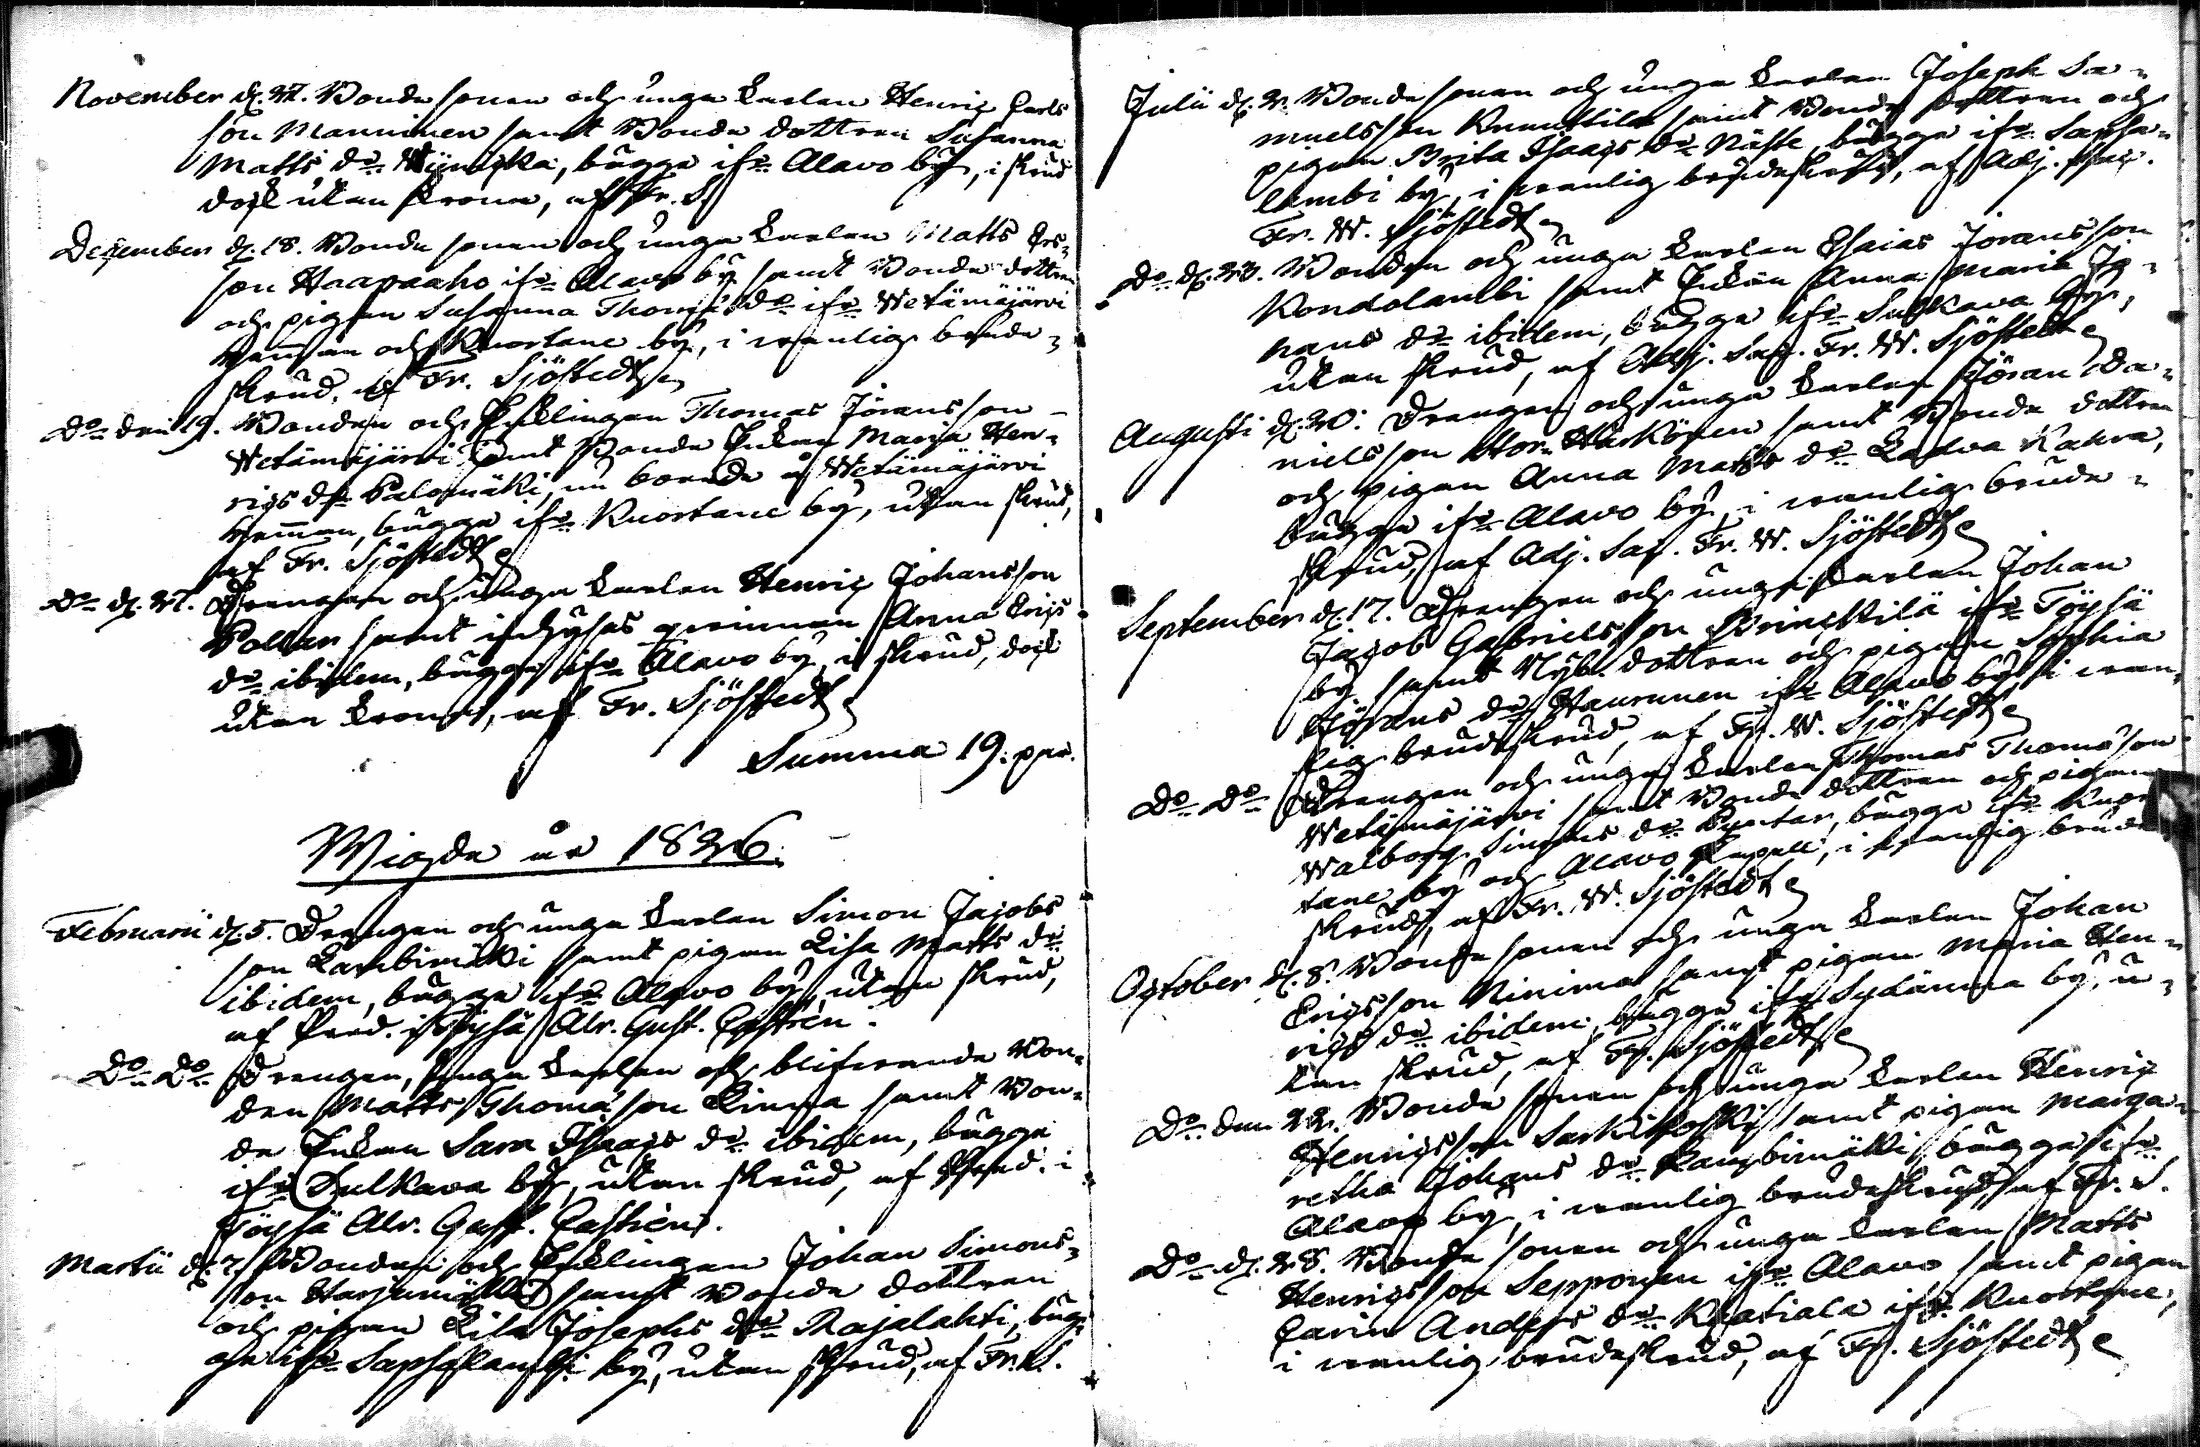 November d. 27. Bonde sonen och unga karlen Henric Carls
son Manninen samt Bonde dottren Susanna
Matts dr, bägge ifr Alavo by, i skrud
dock utan krona, af Fr. S.
December d. 18. Bonde sonen och unga karlen Matts Ers-
son Haapaaho ifr Alavo by samt Bonde dottren
och pigan Susanna Thomæ dr ifr Wetämäjärvi
hemman och Kuortane by, i vanlig brude-
skrud, af Fr. Sjöstedt
Do den 19. Bonden och Enklingen Thomas Jöransson
Wetämäjärvi samt Bonde Enkan Maria Hen-
rics dr Palomäki, nu boende å Wetämäjärvi
hemman, bägge ifr Kuortane by, utan skrud,
af Fr. Sjöstedt
Do d. 27. Drengen och unga karlen Henric Johansson
Pollari samt inhyses qvinnan Anna Erics
dr ibidem, bägge ifr Alavo by, i skrud, dock
utan krona, af Fr. Sjöstedt
Summa 19. par.
Wigde år 1826.
Februarii d. 5. Drengen och unga karlen Simon Jacobs
son Lambimäki samt pigan Lisa Matts dr
ibidem, bägge ifr Alavo by, utan skrud,
af Pred. i Töysä Alr. Gust. Castrén.
Do Do Drengen, unga karlen och blifvande Bon-
den Matts Thomæson Linna samt Bon-
de Enkan Sara Isaacs dr ibidem, bägge
ifr Sulkava by, utan skrud, af Pred. i
Töysä Alr. Gust. Castrén.
Martii d. 7. Bonden och Enklingen Johan Simons-
son Harjumäki samt Bonde dottren
och pigan Lisa Josephs dr Rajalahti, bäg-
ge ifr Sapsalambi by, utan skrud, af Fr. S.
Julii d. 2. Bonde sonen och unga karlen Joseph Sa-
muelsson samt Bonde dottren och
pigan Brita Isaacs dr Nässe, bägge ifr Sapsa-
lambi by, i vanlig brudeskrud, af Adj. Sac.
Fr. W. Sjöstedt
Do d. 23. Bonden och unga karlen Esaias Jöransson
Kondolambi samt Enkan Anna Maria Jö-
rans dr ibidem, bägge ifr Sulkava by,
utan skrud, af Adj. Sac. Fr. W. Sjöstedt
Augusti d. 20. Drengen och unga karlen Jöran Da-
nielsson Stor Härkönen samt Bonde dottren
och pigan Anna Matts dr Ladva Kahra,
bägge ifr Alavo by, i vanlig brude-
skrud, af Adj. Sac. Fr. W. Sjöstedt
September d. 17. Drengen och unga karlen Johan
Jacob Gabrielsson Brinckilä ifr Töysä
by samt Nyb. dottren och pigan Sophia
Jörans dr Haurunen ifr Alavo by, i van-
lig brudeskrud, af Fr. W. Sjöstedt
Do Do Drengen och unga karlen Thomas Thomæson
Wetämäjärvi samt Bonde dottren och pigan
Walborg Simons dr Pyntar, bägge ifr Kuor
tane by och Alavo Kapell, i vanlig brude
skrud, af Fr. W. Sjöstedt
October d. 8. Bonde sonen och unga karlen Johan
Ericsson Niinima samt pigan Maria Hen-
rics dr ibidem, bägge ifr Sydänma by, u-
tan skrud, af Fr. Sjöstedt
Do den 22. Bonde sonen och unga karlen Henric
Henricsson Sarkikoski samt pigan Marga-
retha Johans dr Lambimäki bägge ifr
Alavo by, i vanlig brudeskrud, af Fr. S.
Do d. 28. Bonde sonen och unga karlen Matts
Henricsson Sepponen ifr Alavo samt pigan
Carin Anders dr Kaatiala ifr Kuortane,
i vanlig brudeskrud, af Fr. Sjöstedt